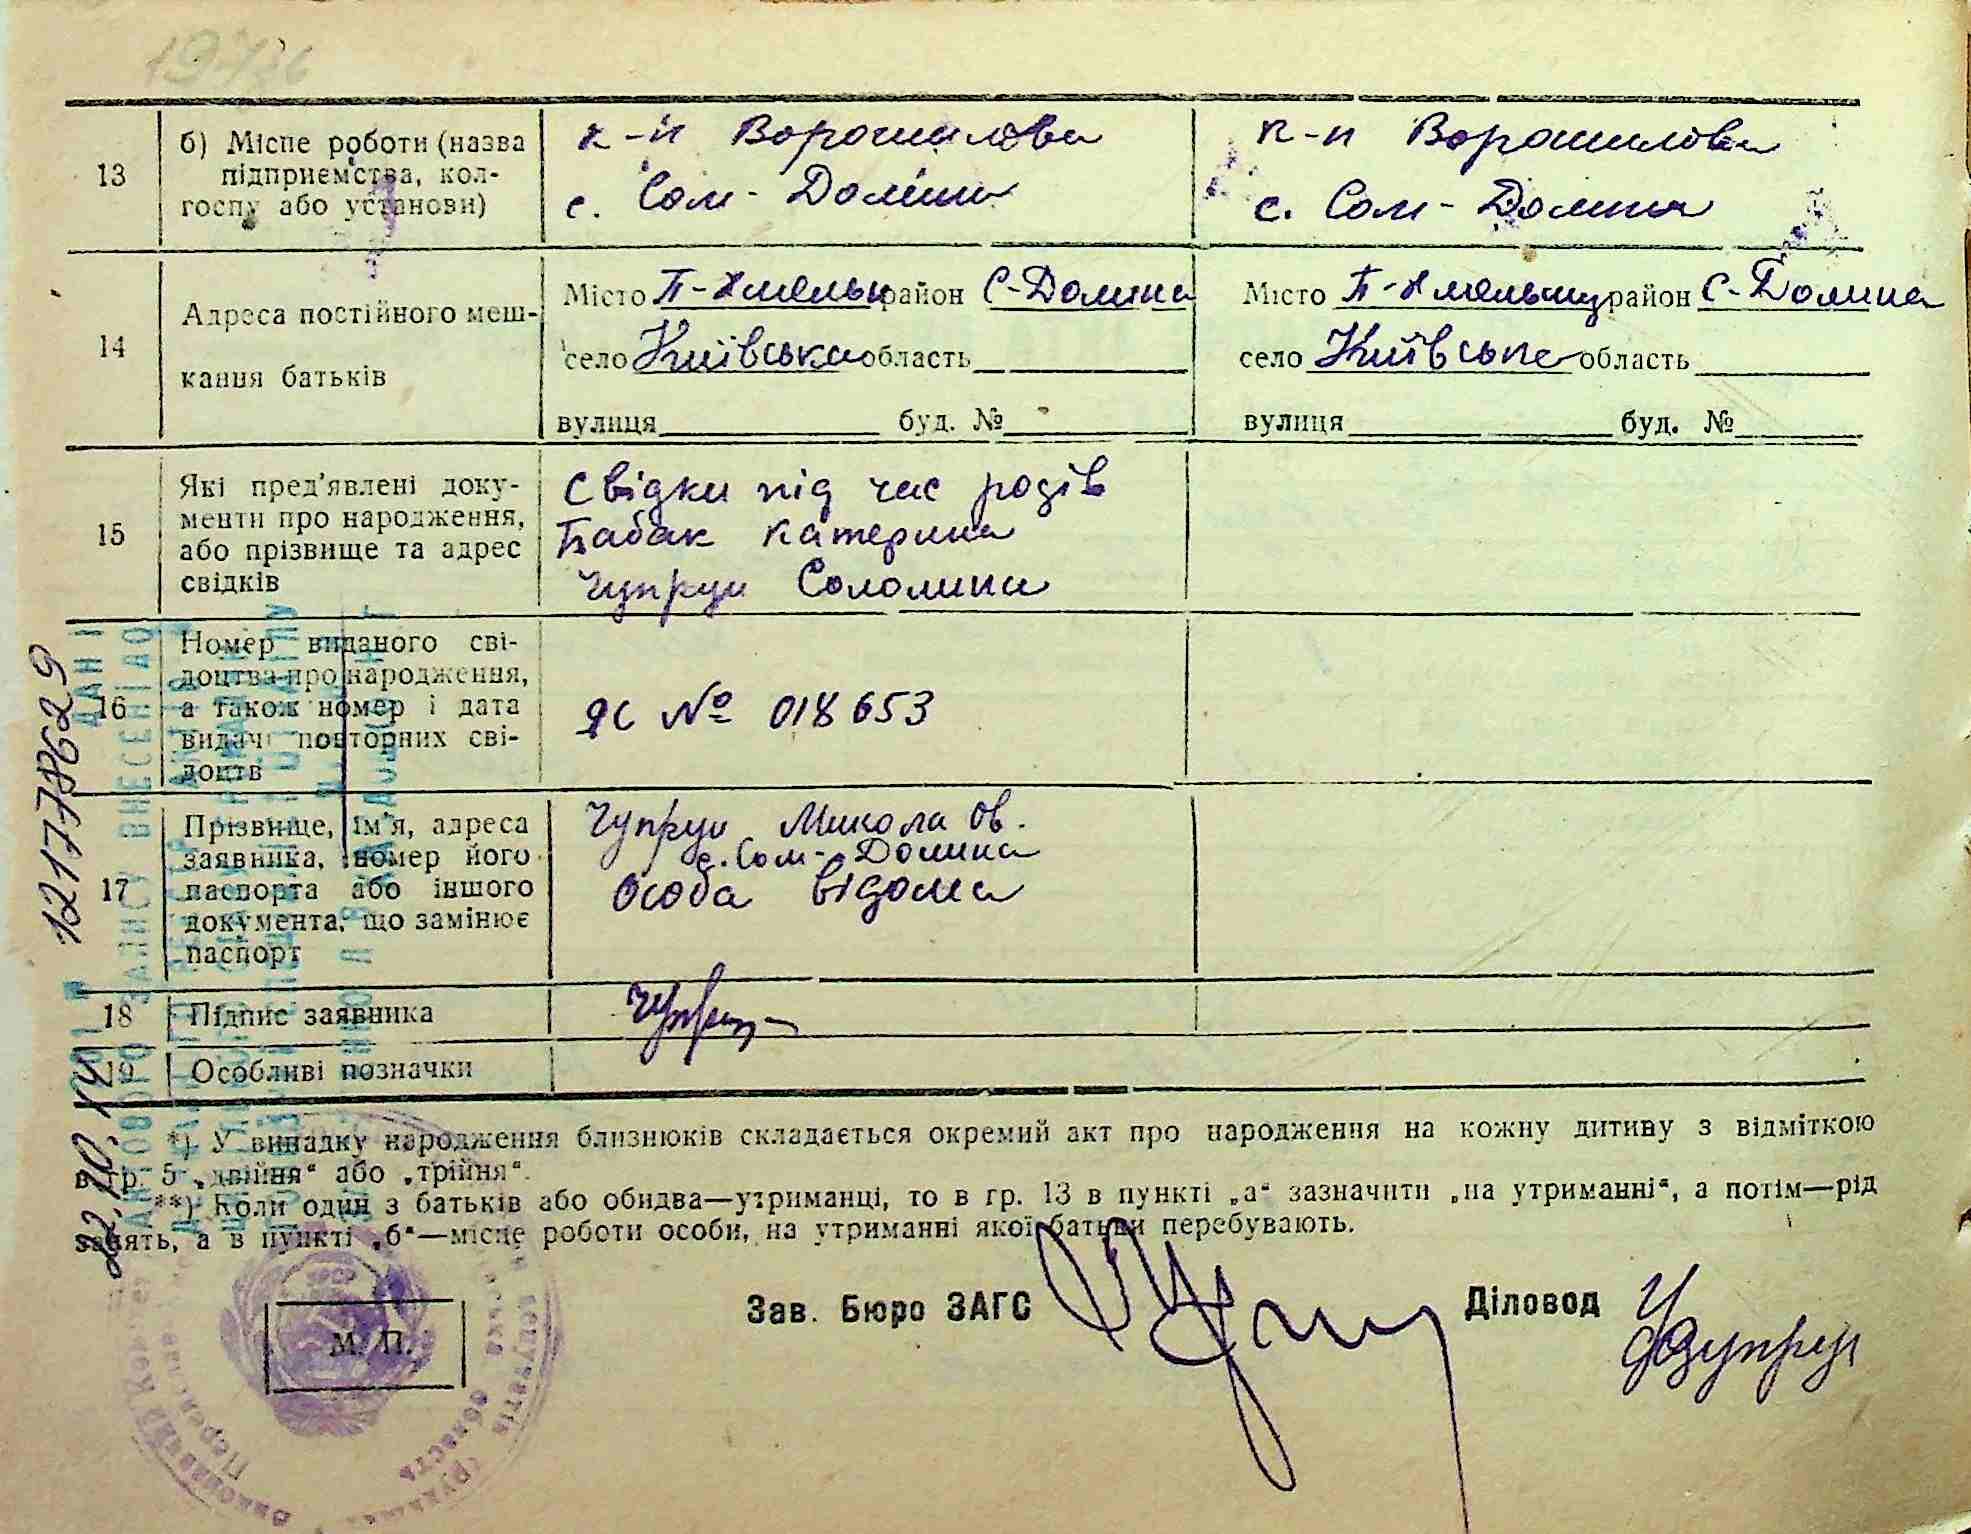 13
б) Місце роботи (назва
підприємства, кол-
госпу або установи)
к-п Ворошилова
с. Сом-Долина
к-п Ворошилова
с. Сом-Долина
14
Адреса постійного меш-
кання батьків
Місто П-Хмельн район С-Долина
село Київська область
вулиця буд. №
Місто П-Хмельниц район С-Долина
село Київське область
вулиця буд. №
15
Які пред'явлені доку-
менти про народження,
або прізвище та адрес
свідків
Свідки під час родів
Бабак Катерина
Чупрун Соломина
16
Номер виданого сві-
доцтва про народження,
а також номер і дата
видачі повторних сві-
доцтв
ЯС № 018653
17
Прізвище, ім'я, адреса
заявника, номер його
паспорта або іншого
документа, що замінює
паспорт
Чупрун Микола Ов.
с. Сом-Долина
Особа відома
18
Підпис заявника
Чупрун
19
Особливі позначки
*) У випадку народження близнюків складається окремий акт про народження на кожну дитину з відміткою
в гр. 5 „двійня“ або „трійня“.
**) Коли один з батьків або обидва—утриманці, то в гр. 13 в пункті „а“ зазначити „на утриманні“, а потім—рід
занять, а в пункті „б“—місце роботи особи, на утриманні якої батьки перебувають.
М. П.
Зав. Бюро ЗАГС
Діловод
Чупрун